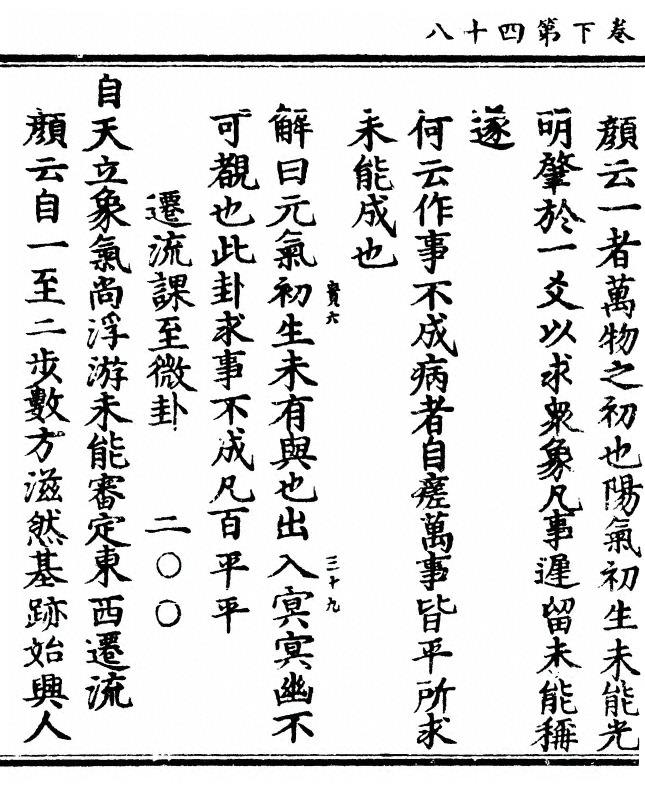 卷下第四十八
顏云一者萬物之初也陽氣初生未能光
明肇於一爻以求衆象凡事遲留未能稱
遂
何云作事不成病者自瘥萬事皆平所求
未能成也
寶六
三十九
解曰元氣初生未有與也出入冥冥幽不
可覩也此卦求事不成凡百平平
遷流課至微卦 二〇〇
自天立象氣尚浮游未能審定東西遷流
顏云自一至二步數方滋然基跡始興人